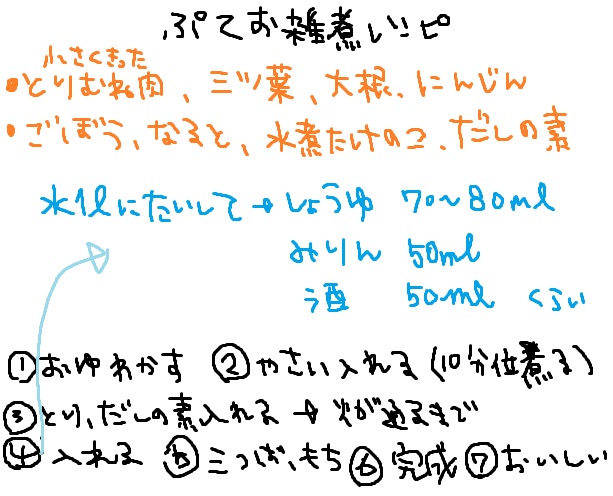 ぷてお雑煮レシピ
小さくきった
・とりむね肉、三ツ葉、大根、にんじん
・ごぼう、なると、水煮たけのこ、だしの素
水1lにたいして→しょうゆ 70〜80ml
みりん 50ml
酒 50ml くらい
①おゆわかす ②やさい入れる(10分位煮る)
③とり、だしの素入れる→火が通るまで
④入れる ⑤三つば、もち ⑥完成 ⑦おいしい